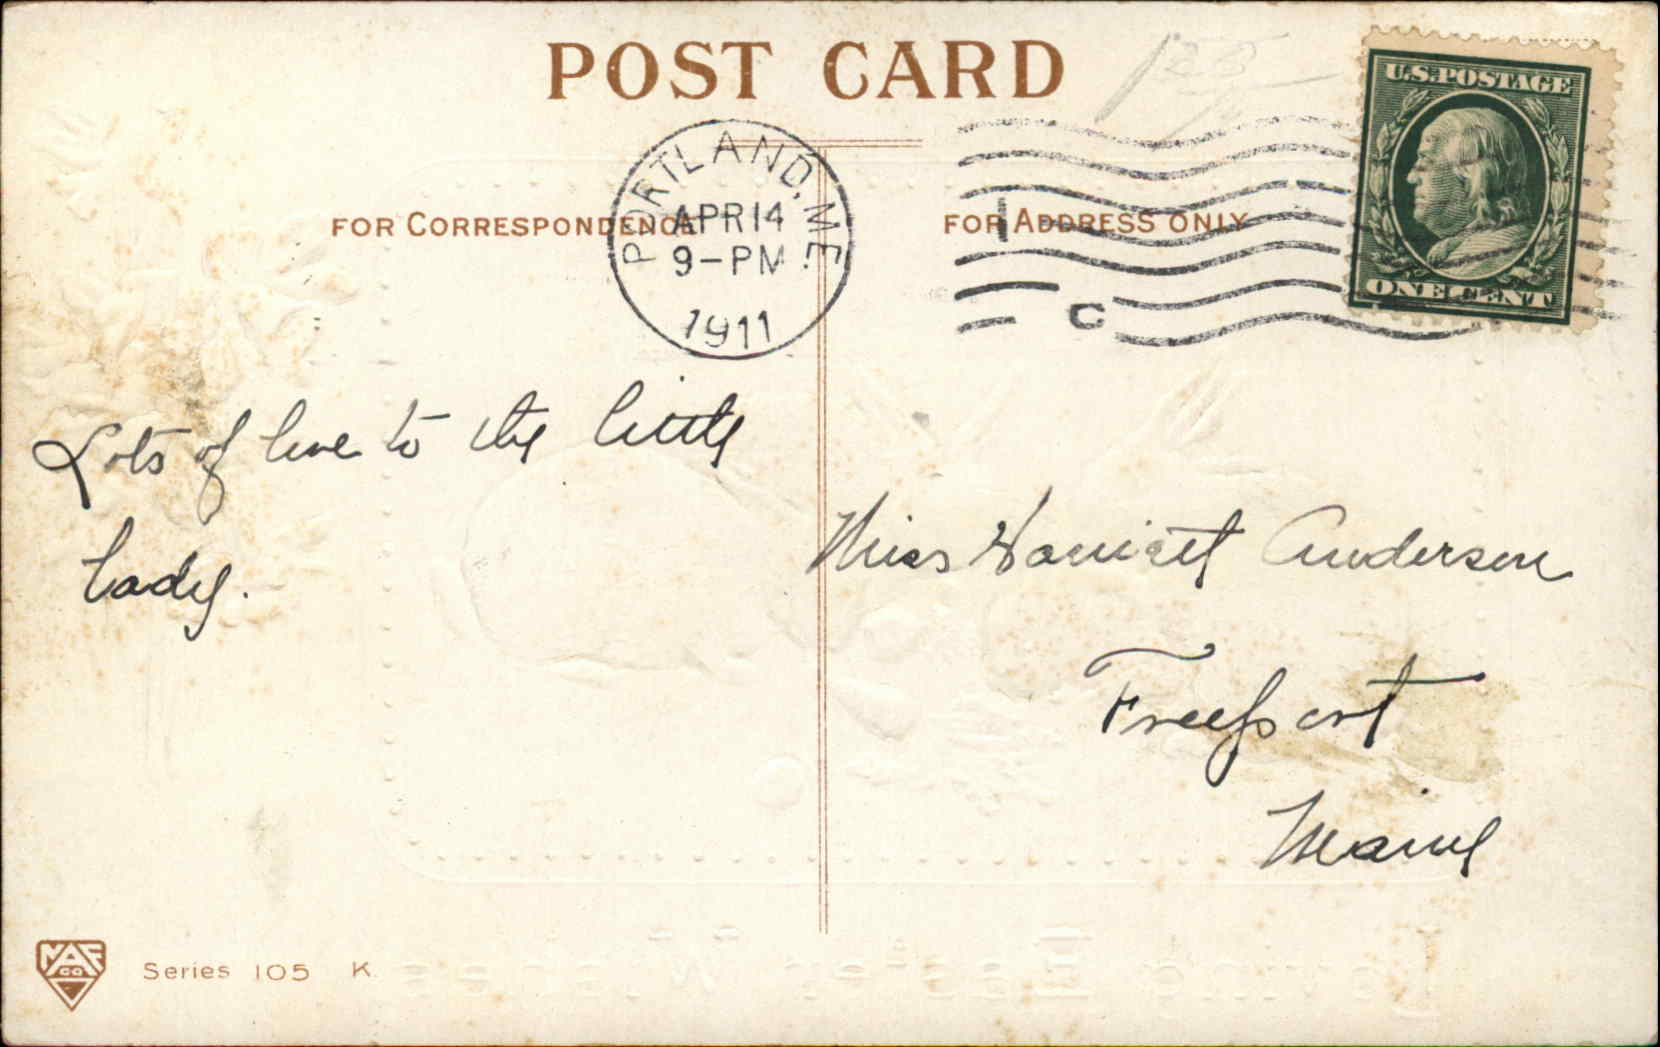 POST CARD
U.S. POSTAGE
ONE CENT
PORTLAND, ME.
APR 14
9-PM
1911
1
C
FOR CORRESPONDENCE
FOR ADDRESS ONLY
Lots of love to the little
lady.
Miss Harriet Anderson
Freeport
Maine
MAF CO
Series 105 K.
Loving Easter Wishes